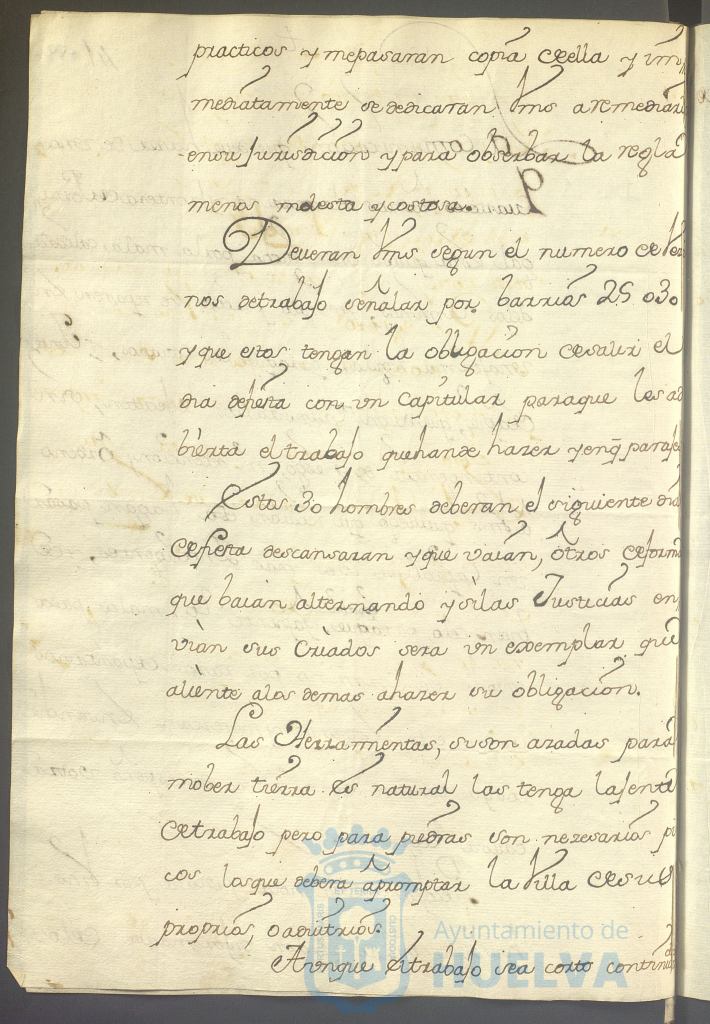 practicos y mepasaran copia deella y im
mediatamente sededicaran Vms aremediar
ensu Jurisdicion y para obserbar la regla
menos molesta y costosa.
Deveran Vms segun el numero de Vezi
nos detrabajo señalar por barrios 25 o 30
y que estos tengan la obligacion desalir el
dia defiesta con un Capitular paraque les ad
bierta el trabajo quehande hazer y enq paraje
Estos 30 hombres deberan el siguiente dia
defiesta descansaran y que vaian, otros deforma
que baian alternando y silas Justicias en
vian sus Criados sera un exemplar que
aliente alos demas ahazer su obligacion.
Las Herramientas, suson azadas para
mober tierra es natural las tenga lajente
detrabajo pero para piedras son nezesarios pi
cos losque debera apromptar la Villa desus
proprios, o advitrios.
Aunque eltrabajo sea corto continu
Ayuntamiento de
HUELVA